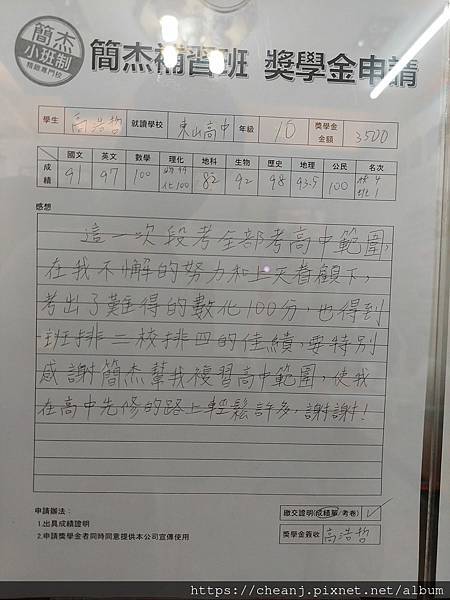 簡杰
小班制
精緻專門校
簡杰補習班 獎學金申請
學生 高浩哲 就讀學校 東山高中 年級 10 獎學金金額 3500
成績 國文 英文 數學 理化 地科 生物 歷史 地理 公民 名次
91 97 100 化100 82 92 98 93.5 100 校4
感想
這一次段考全部考高中範圍,
在我不懈的努力和上天眷顧下,
考出了難得的數化100分,也得到
班排二校排四的佳績,要特別
感謝簡杰幫我複習高中範圍,使我
在高中先修的路上輕鬆許多,謝謝!
申請辦法:
1.出具成績證明
2.申請獎學金者同時同意提供本公司宣傳使用
繳交證明(成績單/考卷) ✓
獎學金簽收 高浩哲
https://cheanj.pixnet.net/album